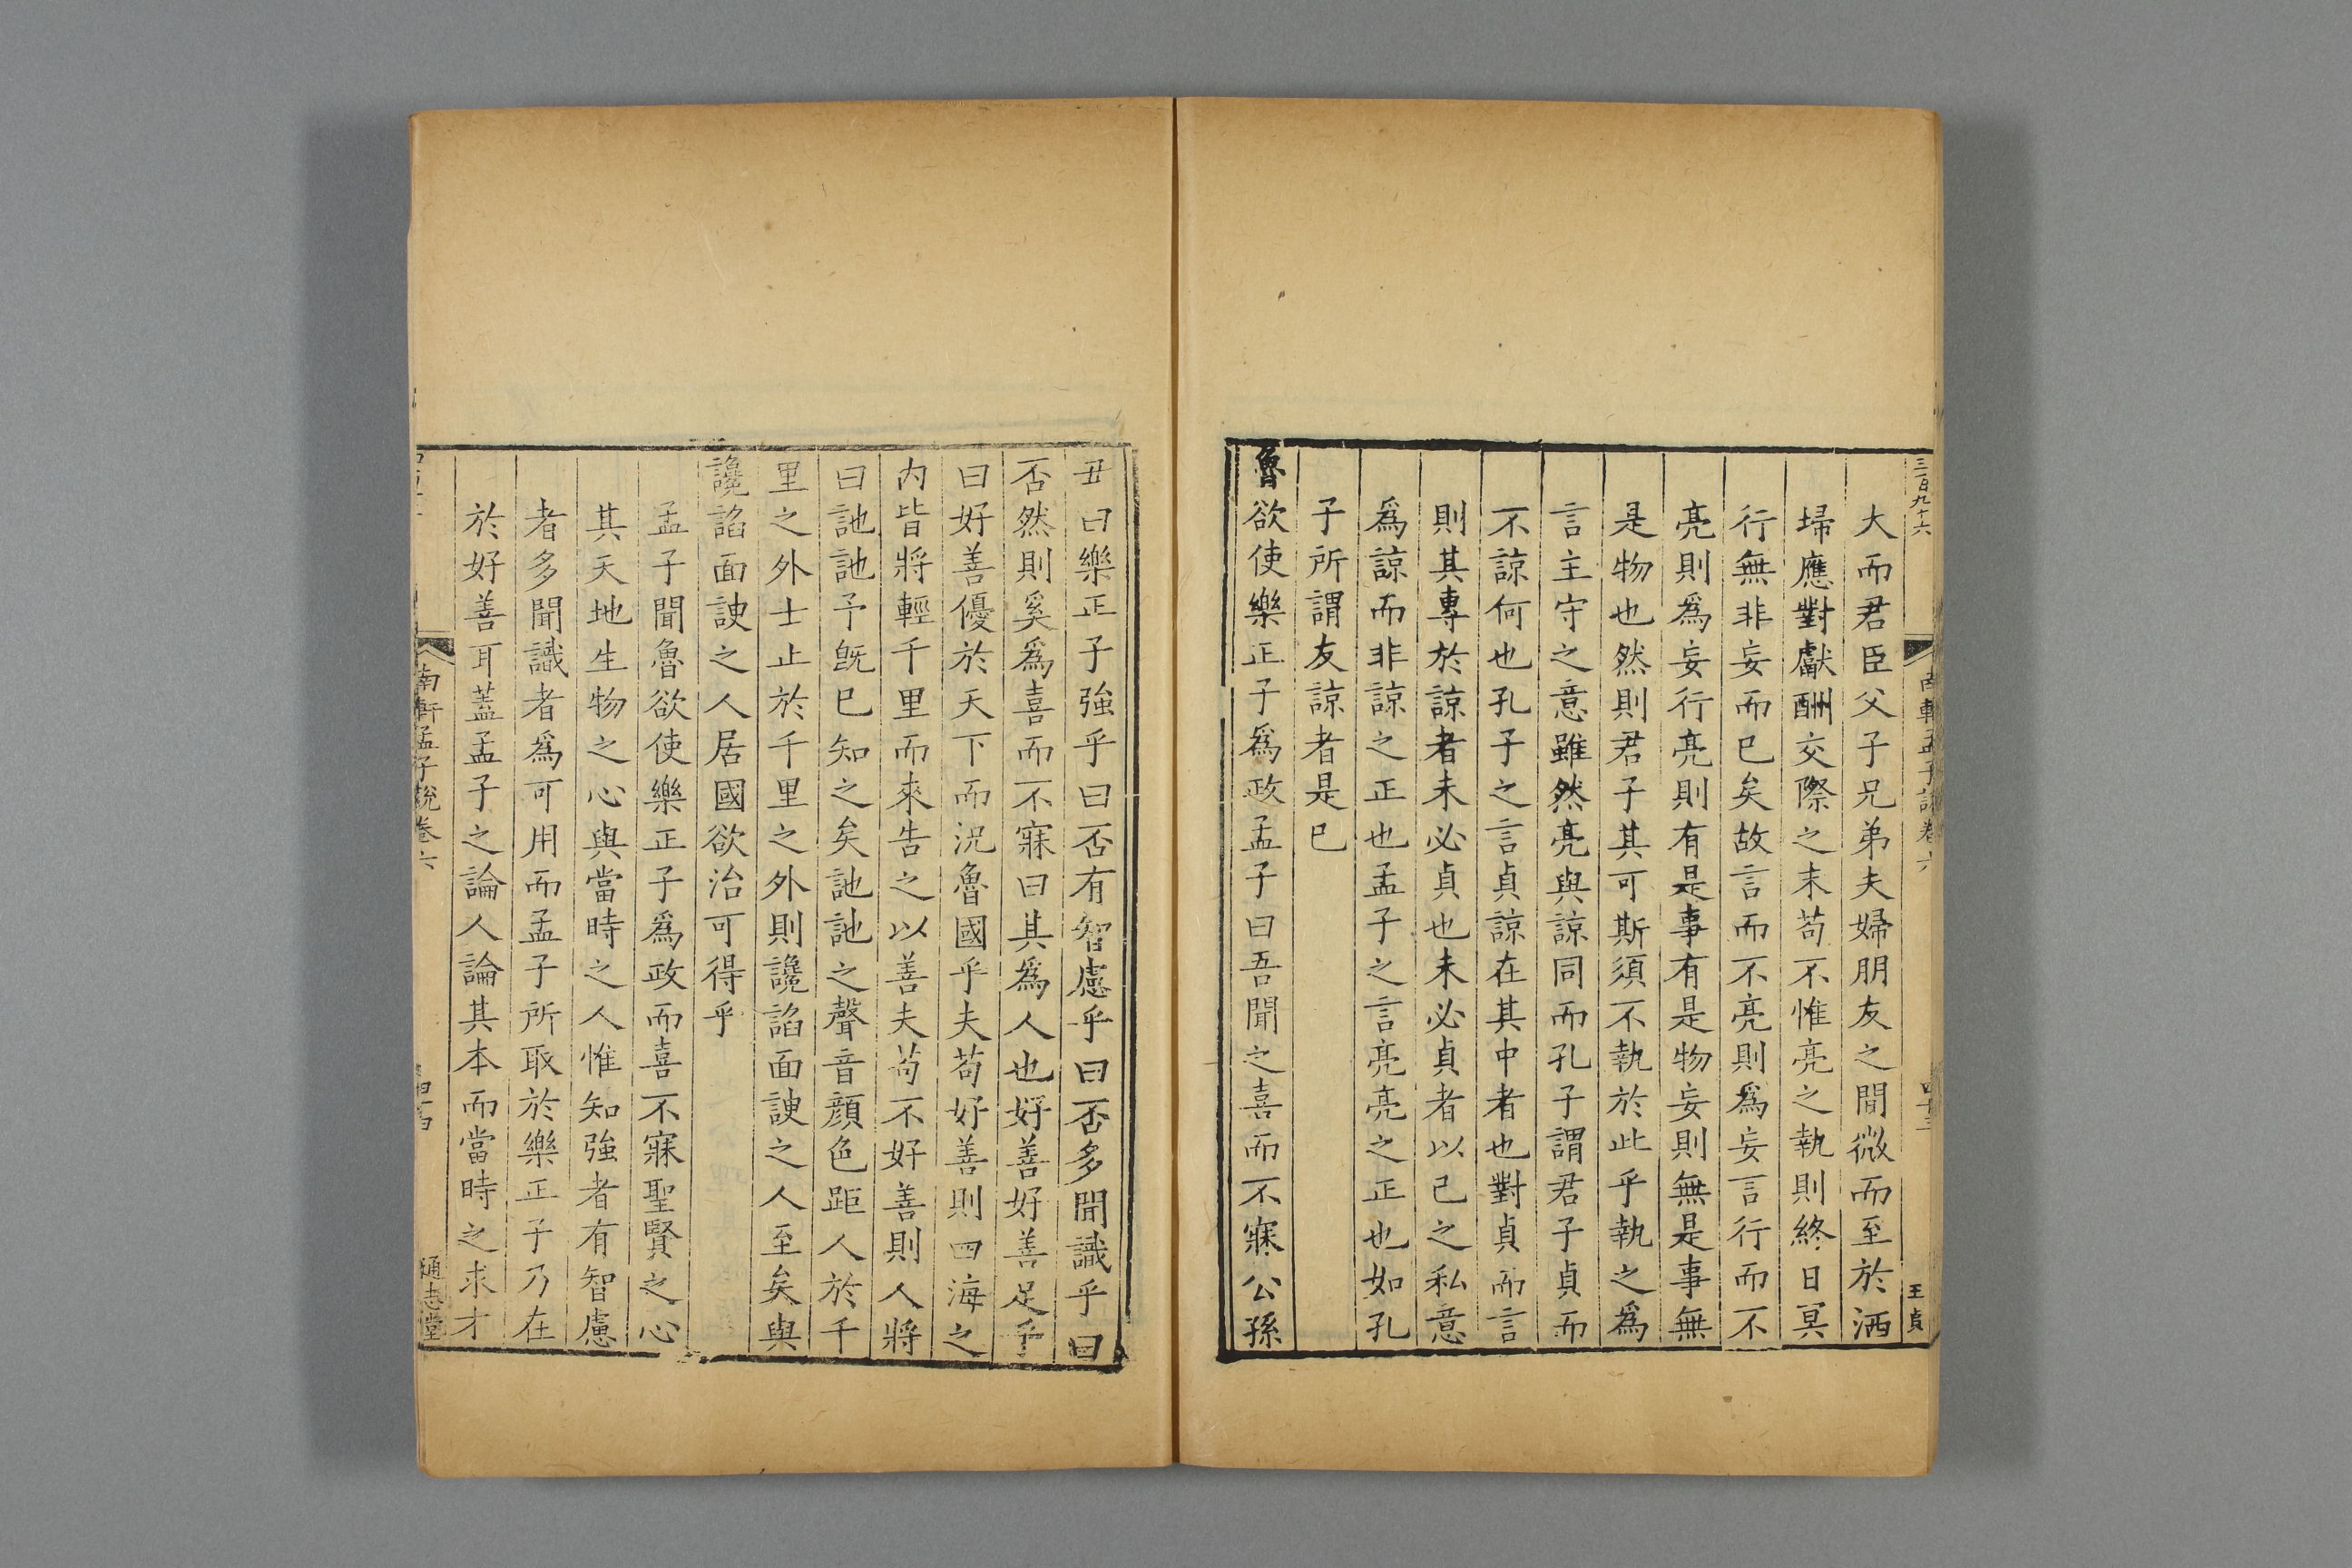 三百九十六
王貞
大而君臣父子兄弟夫婦朋友之間微而至於洒
埽應對獻酬交際之末苟不惟亮之執則終日冥
行無非妄而已矣故言而不亮則爲妄言行而不
亮則爲妄行亮則有是事有是物妄則無是事無
是物也然則君子其可斯須不執於此乎執之爲
言主守之意雖然亮與諒同而孔子謂君子貞而
不諒何也孔子之言貞諒在其中者也對貞而言
則其專於諒者未必貞也未必貞者以己之私意
爲諒而非諒之正也孟子之言亮亮之正也如孔
子所謂友諒者是已
魯欲使樂正子爲政孟子曰吾聞之喜而不寐公孫
丑曰樂正子強乎曰否有智慮乎曰否多聞識乎曰
否然則奚爲喜而不寐曰其爲人也好善好善足乎
曰好善優於天下而況魯國乎夫苟好善則四海之
内皆將輕千里而來告之以善夫苟不好善則人將
曰訑訑予既已知之矣訑訑之聲音顔色距人於千
里之外士止於千里之外則讒諂面諛之人至矣與
讒諂面諛之人居國欲治可得乎
孟子聞魯欲使樂正子爲政而喜不寐聖賢之心
其天地生物之心與當時之人惟知強者有智慮
者多聞識者爲可用而孟子所取於樂正子乃在
於好善耳蓋孟子之論人論其本而當時之求才
南軒孟子說卷六
通志堂